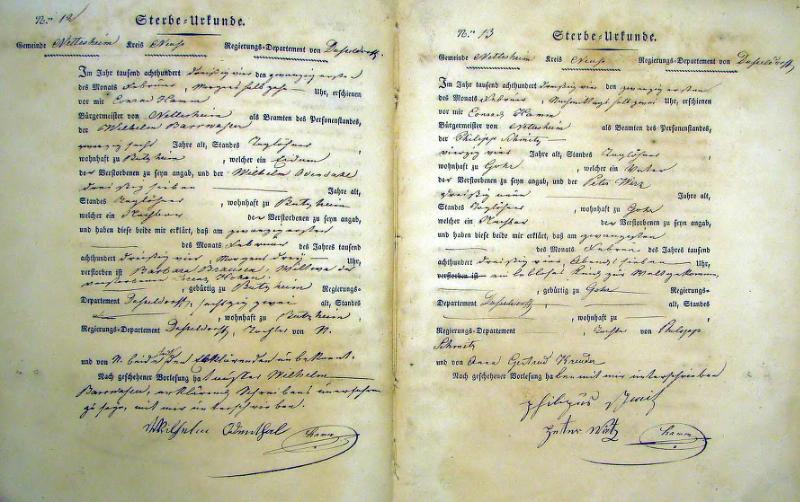 N.ro 12
Sterbe-Urkunde.
Gemeinde Nettesheim Kreis Neuss Regierungs-Departement von Dusseldorff.
Im Jahr tausend achthundert dreißig vier den zwanzig ersten
des Monats Februar, Morgens halb zehn Uhr, erschienen
vor mir Conrad Hamm
Bürgermeister von Nettesheim als Beamten des Personenstandes,
der Wilhelm Barrwasen
zwanzig sechs Jahre alt, Standes Taglöhner
, wohnhaft zu Butzheim, welcher ein Eidam
der Verstorbenen zu seyn angab, und der Wilhelm Odendahl
dreißig sieben Jahre alt,
Standes Taglöhner, wohnhaft zu Butzheim
welcher ein Nachbar der Verstorbenen zu seyn angab,
und haben diese beide mir erklärt, daß am zwanzigsten
des Monats Februar des Jahres tausend
achthundert dreißig vier, Morgens drey Uhr,
verstorben ist Barbara Wittwe des
verstorbenen
, gebürtig zu Butzheim Regierungs-
Departement Dusseldorff, sechszig zwei alt, Standes
, wohnhaft zu Butzheim
Regierungs-Departement Dusseldorff, Tochter von N.
und von N. beide den Erklärenden unbekannt.
Nach geschehener Vorlesung hat Wilhelm
Barrwasen, erklärend Schreibens unerfahren
zu seyn, mit mir unterschrieben.
Wilhelm Odenthal Hamm
N.ro 13
Sterbe-Urkunde.
Gemeinde Nettesheim Kreis Neuss Regierungs-Departement von Dusseldorff.
Im Jahr tausend achthundert dreißig vier den zwanzig ersten
des Monats Februar, Nachmittags halb zwei Uhr, erschienen
vor mir Conrad Hamm
Bürgermeister von Nettesheim als Beamten des Personenstandes,
der Philipp Schmitz
vierzig vier Jahre alt, Standes Taglöhner
wohnhaft zu Gohr, welcher ein Vater
der Verstorbenen zu seyn angab, und der Peter
dreißig neun Jahre alt,
Standes Taglöhner, wohnhaft zu Gohr
welcher ein Nachbar der Verstorbenen zu seyn angab,
und haben diese beide mir erklärt, daß am zwanzigsten
des Monats Februar des Jahres tausend
achthundert dreißig vier, Abends sieben Uhr,
verstorben ist ein lebloses Kind zur Welt gekommen
, gebürtig zu Gohr Regierungs-
Departement Dusseldorff alt, Standes
, wohnhaft zu
Regierungs-Departement Tochter von Philipp
Schmitz
und von Anna Gertrud
Nach geschehener Vorlesung haben mit mir unterschrieben
Philipus Schmitz
Peter Hamm